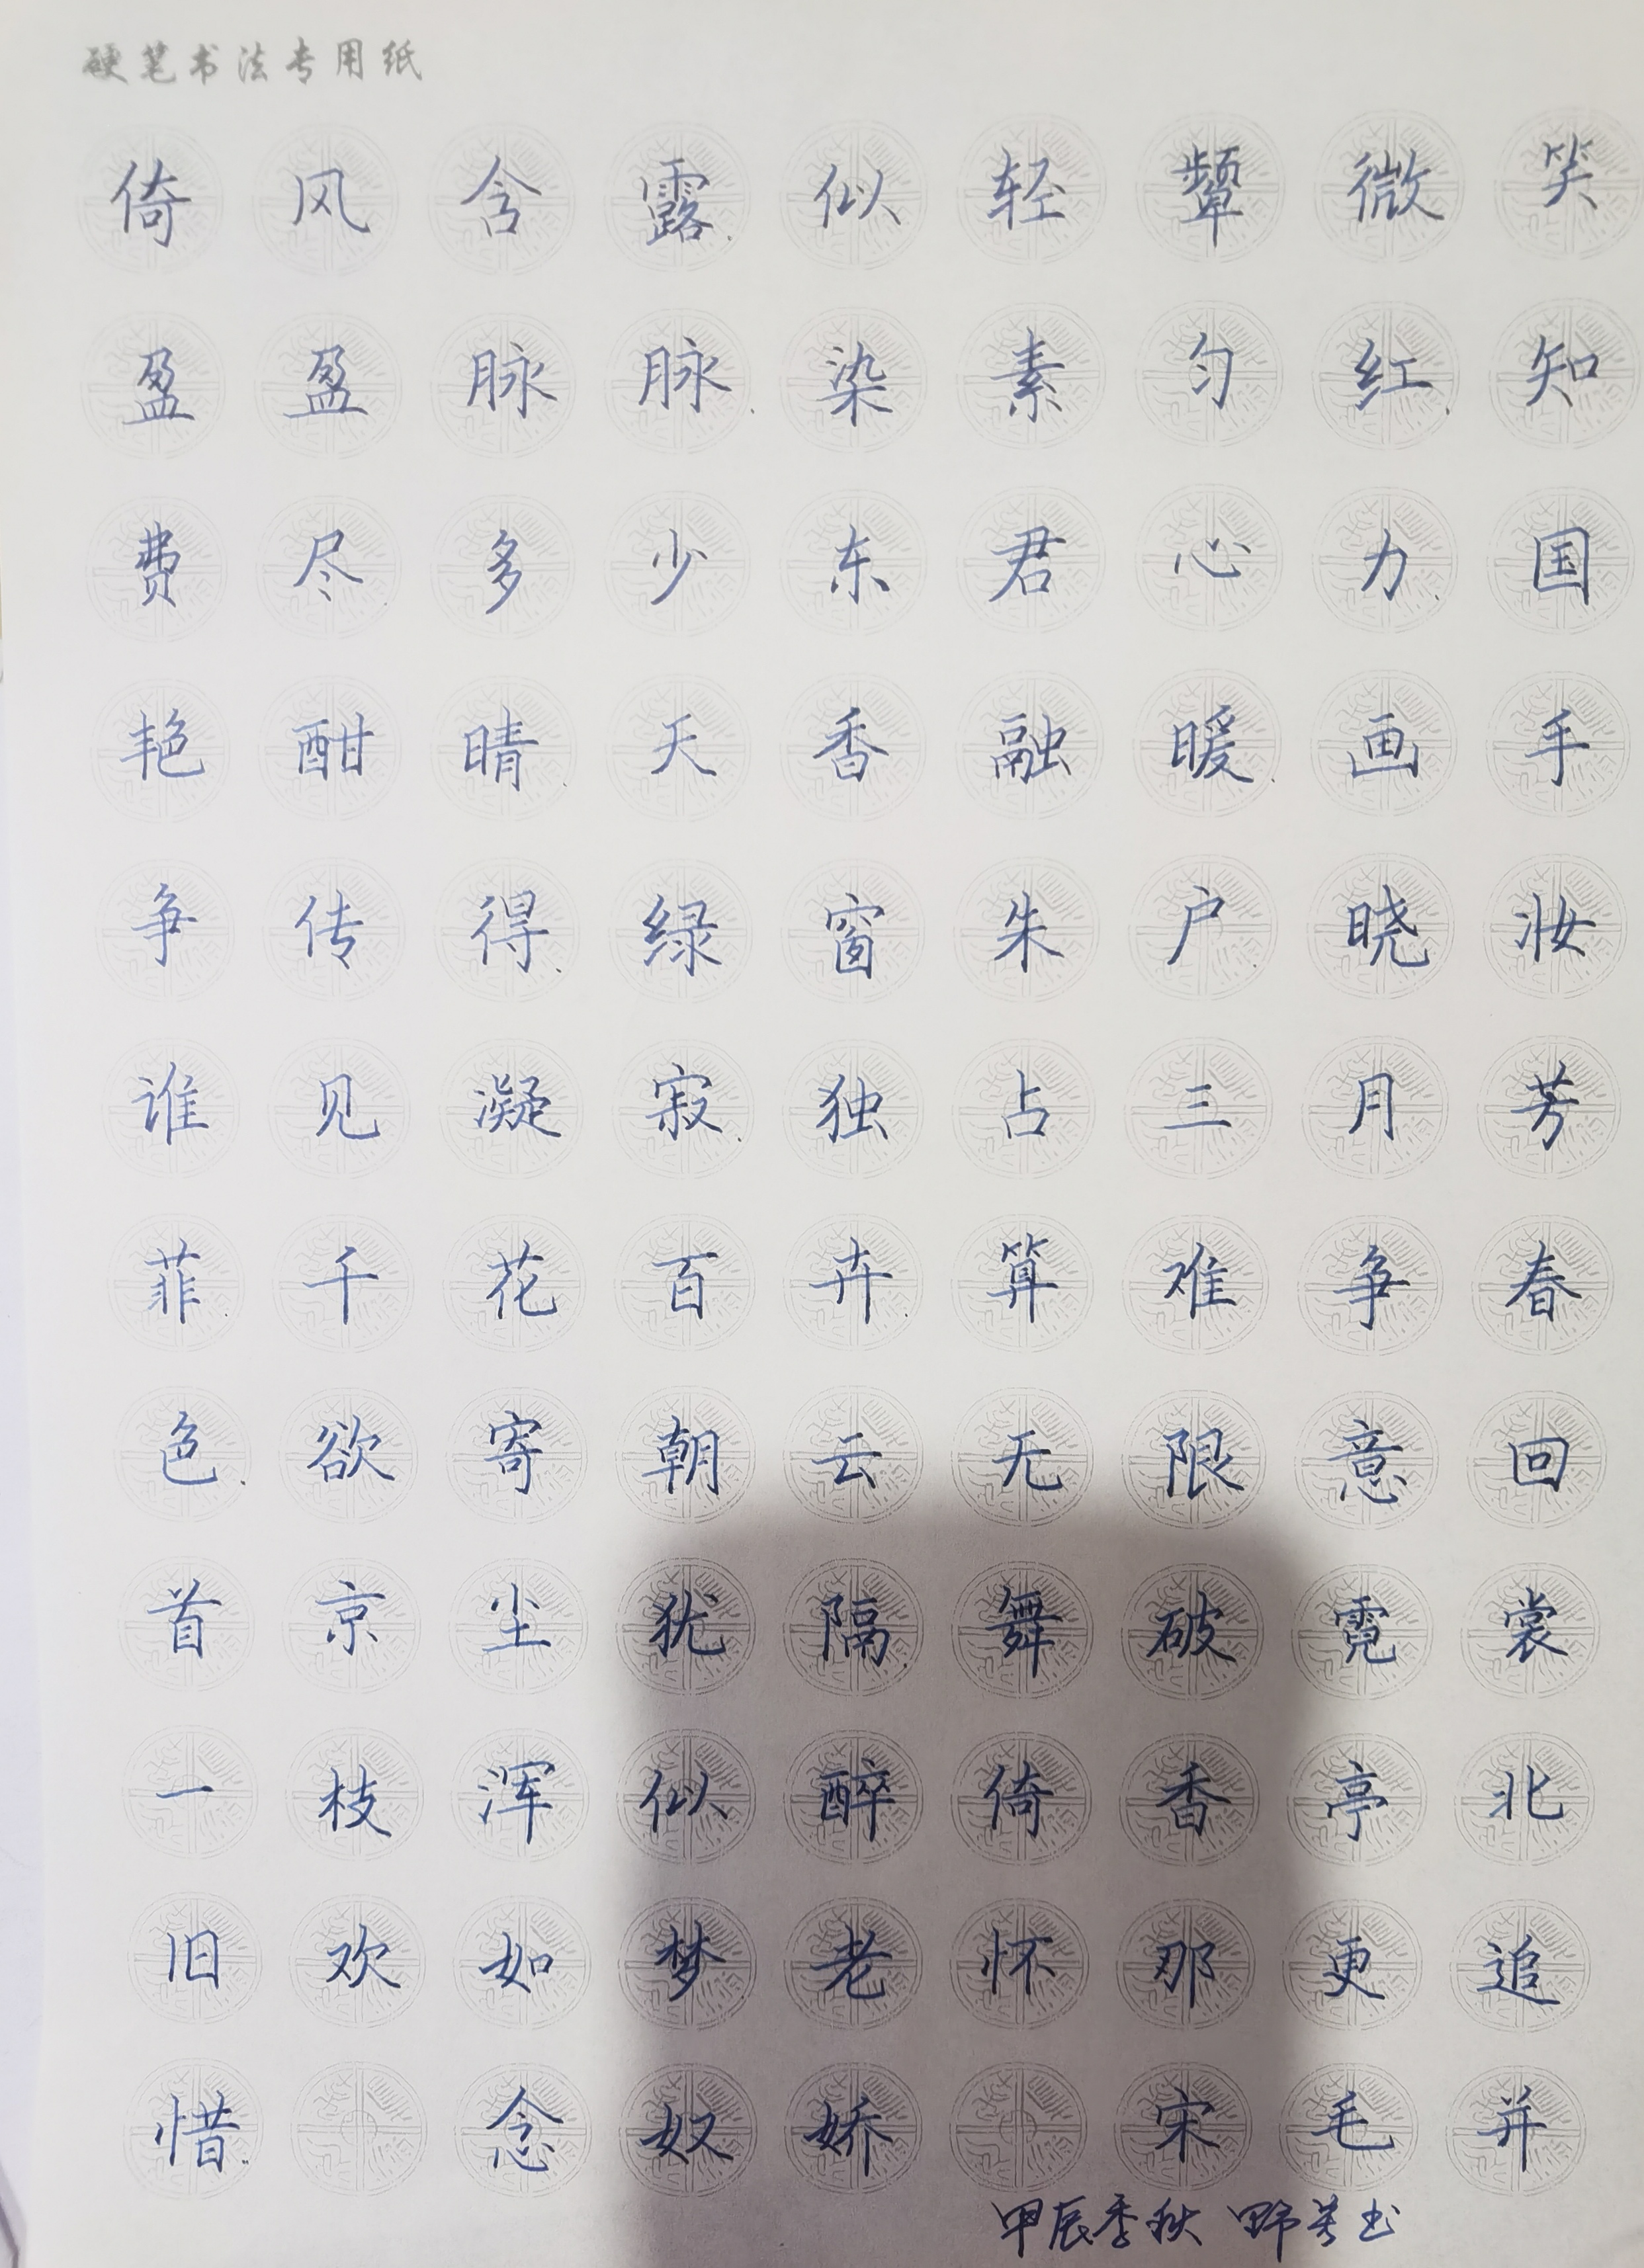 硬笔书法专用纸
倚风含露.似轻颦微笑
盈盈脉脉.染素匀红.知
费尽多少东君心力.国
艳酣晴.天香融暖.画手
争传得.绿窗朱户.晓妆
谁见凝寂.独占三月芳
菲.千花百卉.算难争春
色.欲寄朝云无限意回
首京尘犹隔.舞破霓裳
一枝浑似醉倚香亭北
旧欢如梦老怀那更追
惜. 念奴娇 宋毛并
甲辰季秋 野 书